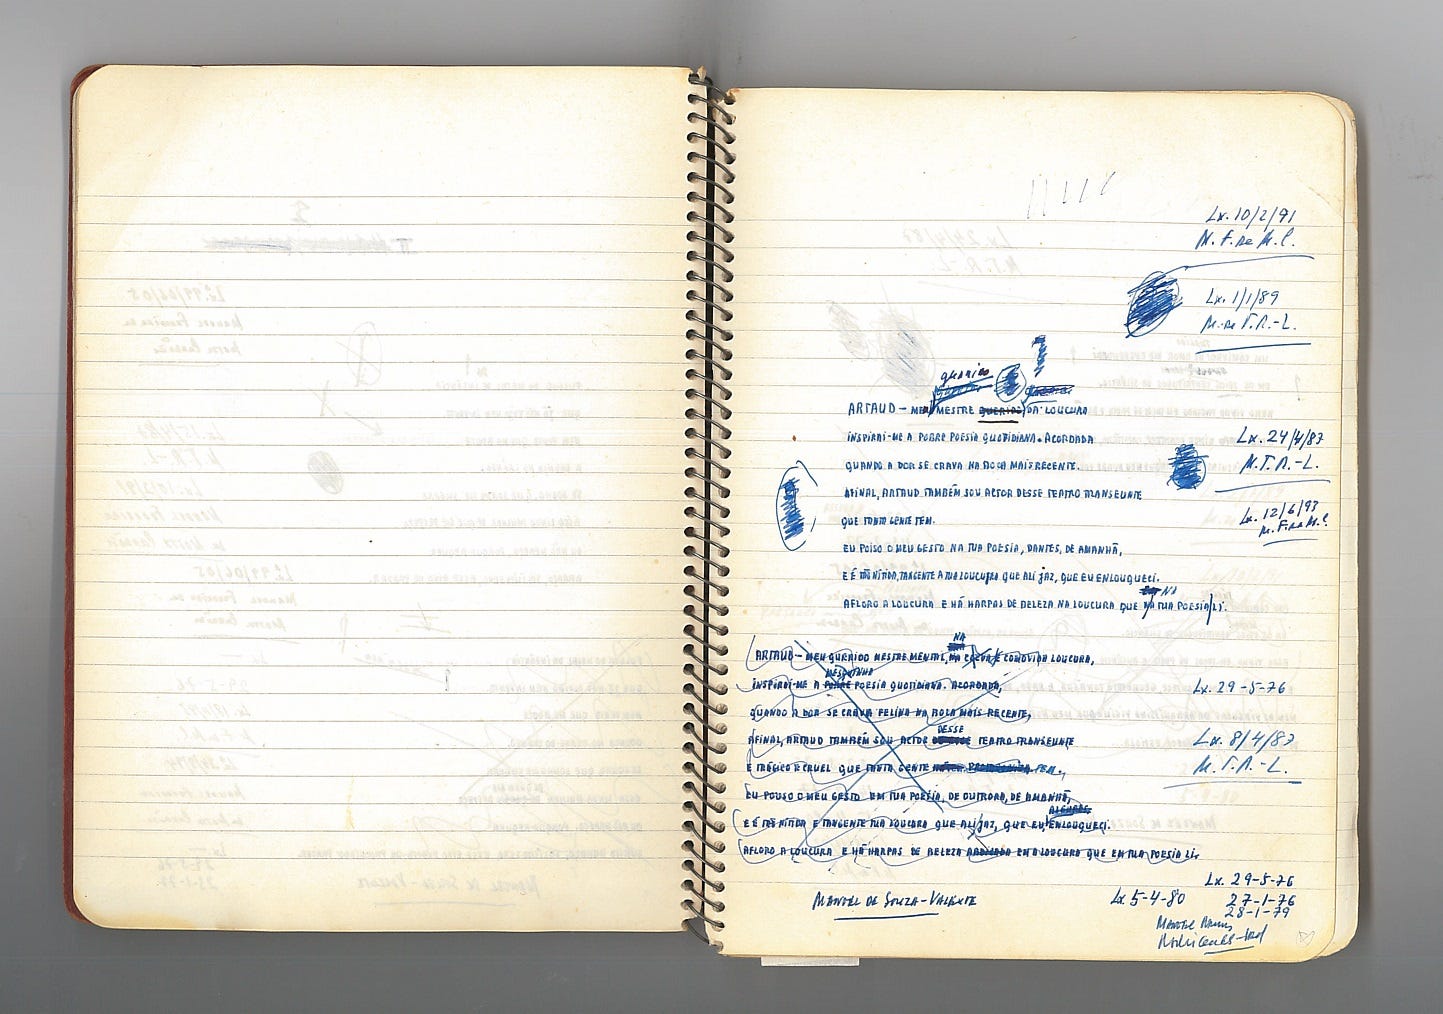 Lx. 10/2/91
M. F. de M. C.
Lx. 1/1/89
M. de T. R.-L.
querido
ARTAUD — MEU MESTRE QUERIDO DA LOUCURA
INSPIRAI-ME A POBRE POESIA QUOTIDIANA. ACORDADA
Lx. 24/4/87
QUANDO A DOR SE CRAVA NA ROCA MAIS RECENTE.
M. T. R.-L.
AFINAL, ARTAUD TAMBÉM SOU ACTOR DESSE TEATRO TRANSEUNTE
Lx. 12/6/93
QUE TANTA GENTE TEM.
M. F. de M. C.
EU POISO O MEU GESTO NA TUA POESIA, DANTES, DE AMANHÃ,
E É TÃO NÍTIDA, TANGENTE A TUA LOUCURA QUE ALI JAZ, QUE EU ENLOUQUECI.
NA
AFLORO A LOUCURA E HÁ HARPAS DE BELEZA NA LOUCURA QUE NA TUA POESIA LI.
NA
ARTAUD — MEU QUERIDO MESTRE MENTAL, NA E COMOVIDA LOUCURA,
MESQUINHA
INSPIRAI-ME A POBRE POESIA QUOTIDIANA. ACORDADA,
Lx. 29-5-76
QUANDO A DOR SE CRAVA FELINA NA ROLA MAIS RECENTE,
DESSE
AFINAL, ARTAUD TAMBÉM SOU ACTOR TEATRO TRANSEUNTE
Lx. 8/4/87
E TRÁGICO E CRUEL QUE TANTA GENTE TEM.
M. T. R.-L.
EU POUSO O MEU GESTO EM TUA POESIA, DE OUTRORA, DE AMANHÃ,
E É TÃO NÍTIDA E TANGENTE TUA LOUCURA QUE ALI JAZ, QUE EU, ENLOUQUECI.
AFLORO A LOUCURA E HÁ HARPAS DE BELEZA EM A LOUCURA QUE EM TUA POESIA LI.
Lx. 29-5-76
MANUEL DE SOUZA-VALENTE
Lx. 5-4-80
27-1-76
28-1-79